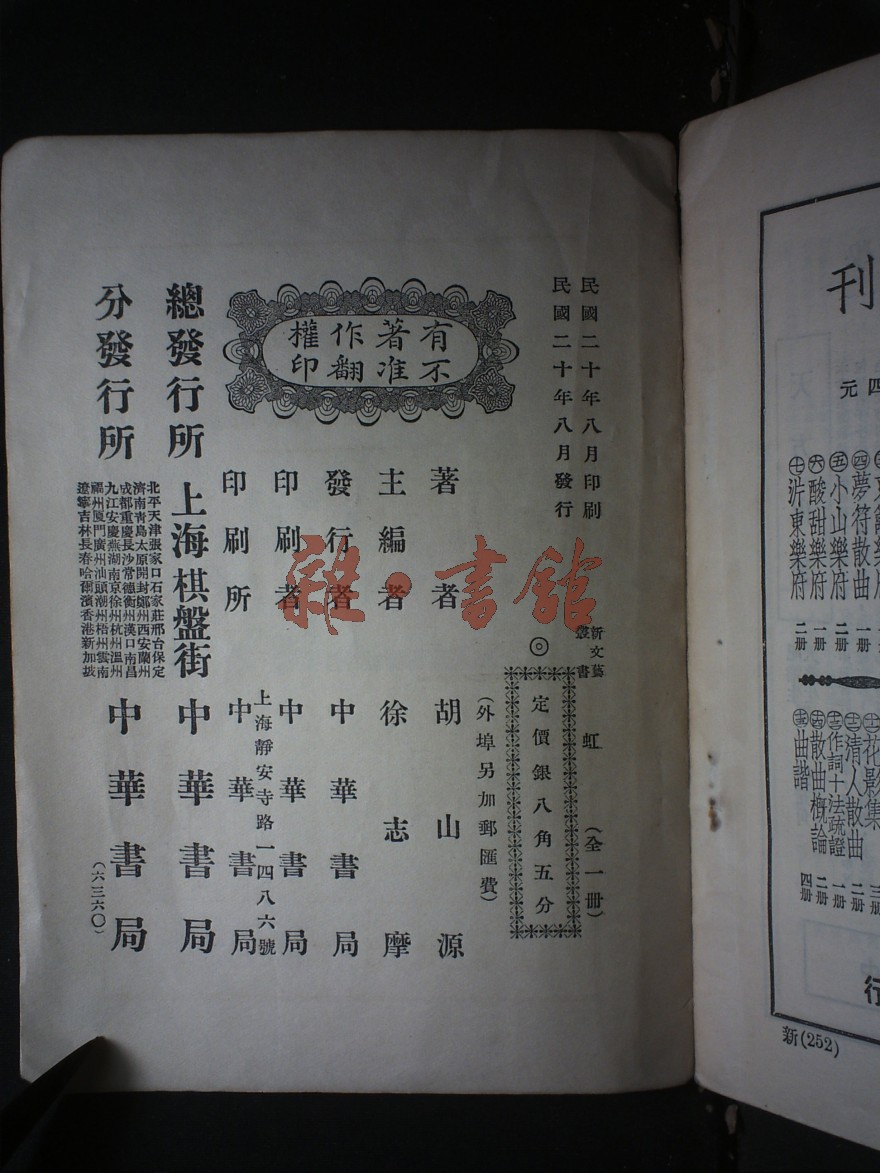 民國二十年八月印刷
民國二十年八月發行
新文藝
叢書
虹
(全一冊)
◎
定價銀八角五分
(外埠另加郵匯費)
有著作權
不准翻印
著者 胡山源
主編者 徐志摩
發行者 中華書局
印刷者 中華書局
上海靜安寺路一四八六號
印刷所 中華書局
總發行所 上海棋盤街 中華書局
分發行所
北平天津張家口石家莊邢台保定
濟南青島太原開封鄭州西安蘭州
成都重慶長沙常德衡州漢口南昌
九江安慶蕪湖南京徐州杭州溫州
福州廈門廣州汕頭潮州梧州雲南
遼寧吉林長春哈爾濱香港新加坡
中華書局
(六三六〇)
雜·書館
刊
四元
㊃夢符散曲
㊄小山樂府 一冊
㊅酸甜樂府 一冊
㊆沜東樂府 二冊
花影集 三冊
清人散曲 二冊
作詞十法疏證 一冊
散曲概論 二冊
曲諧 四冊
行
新(252)